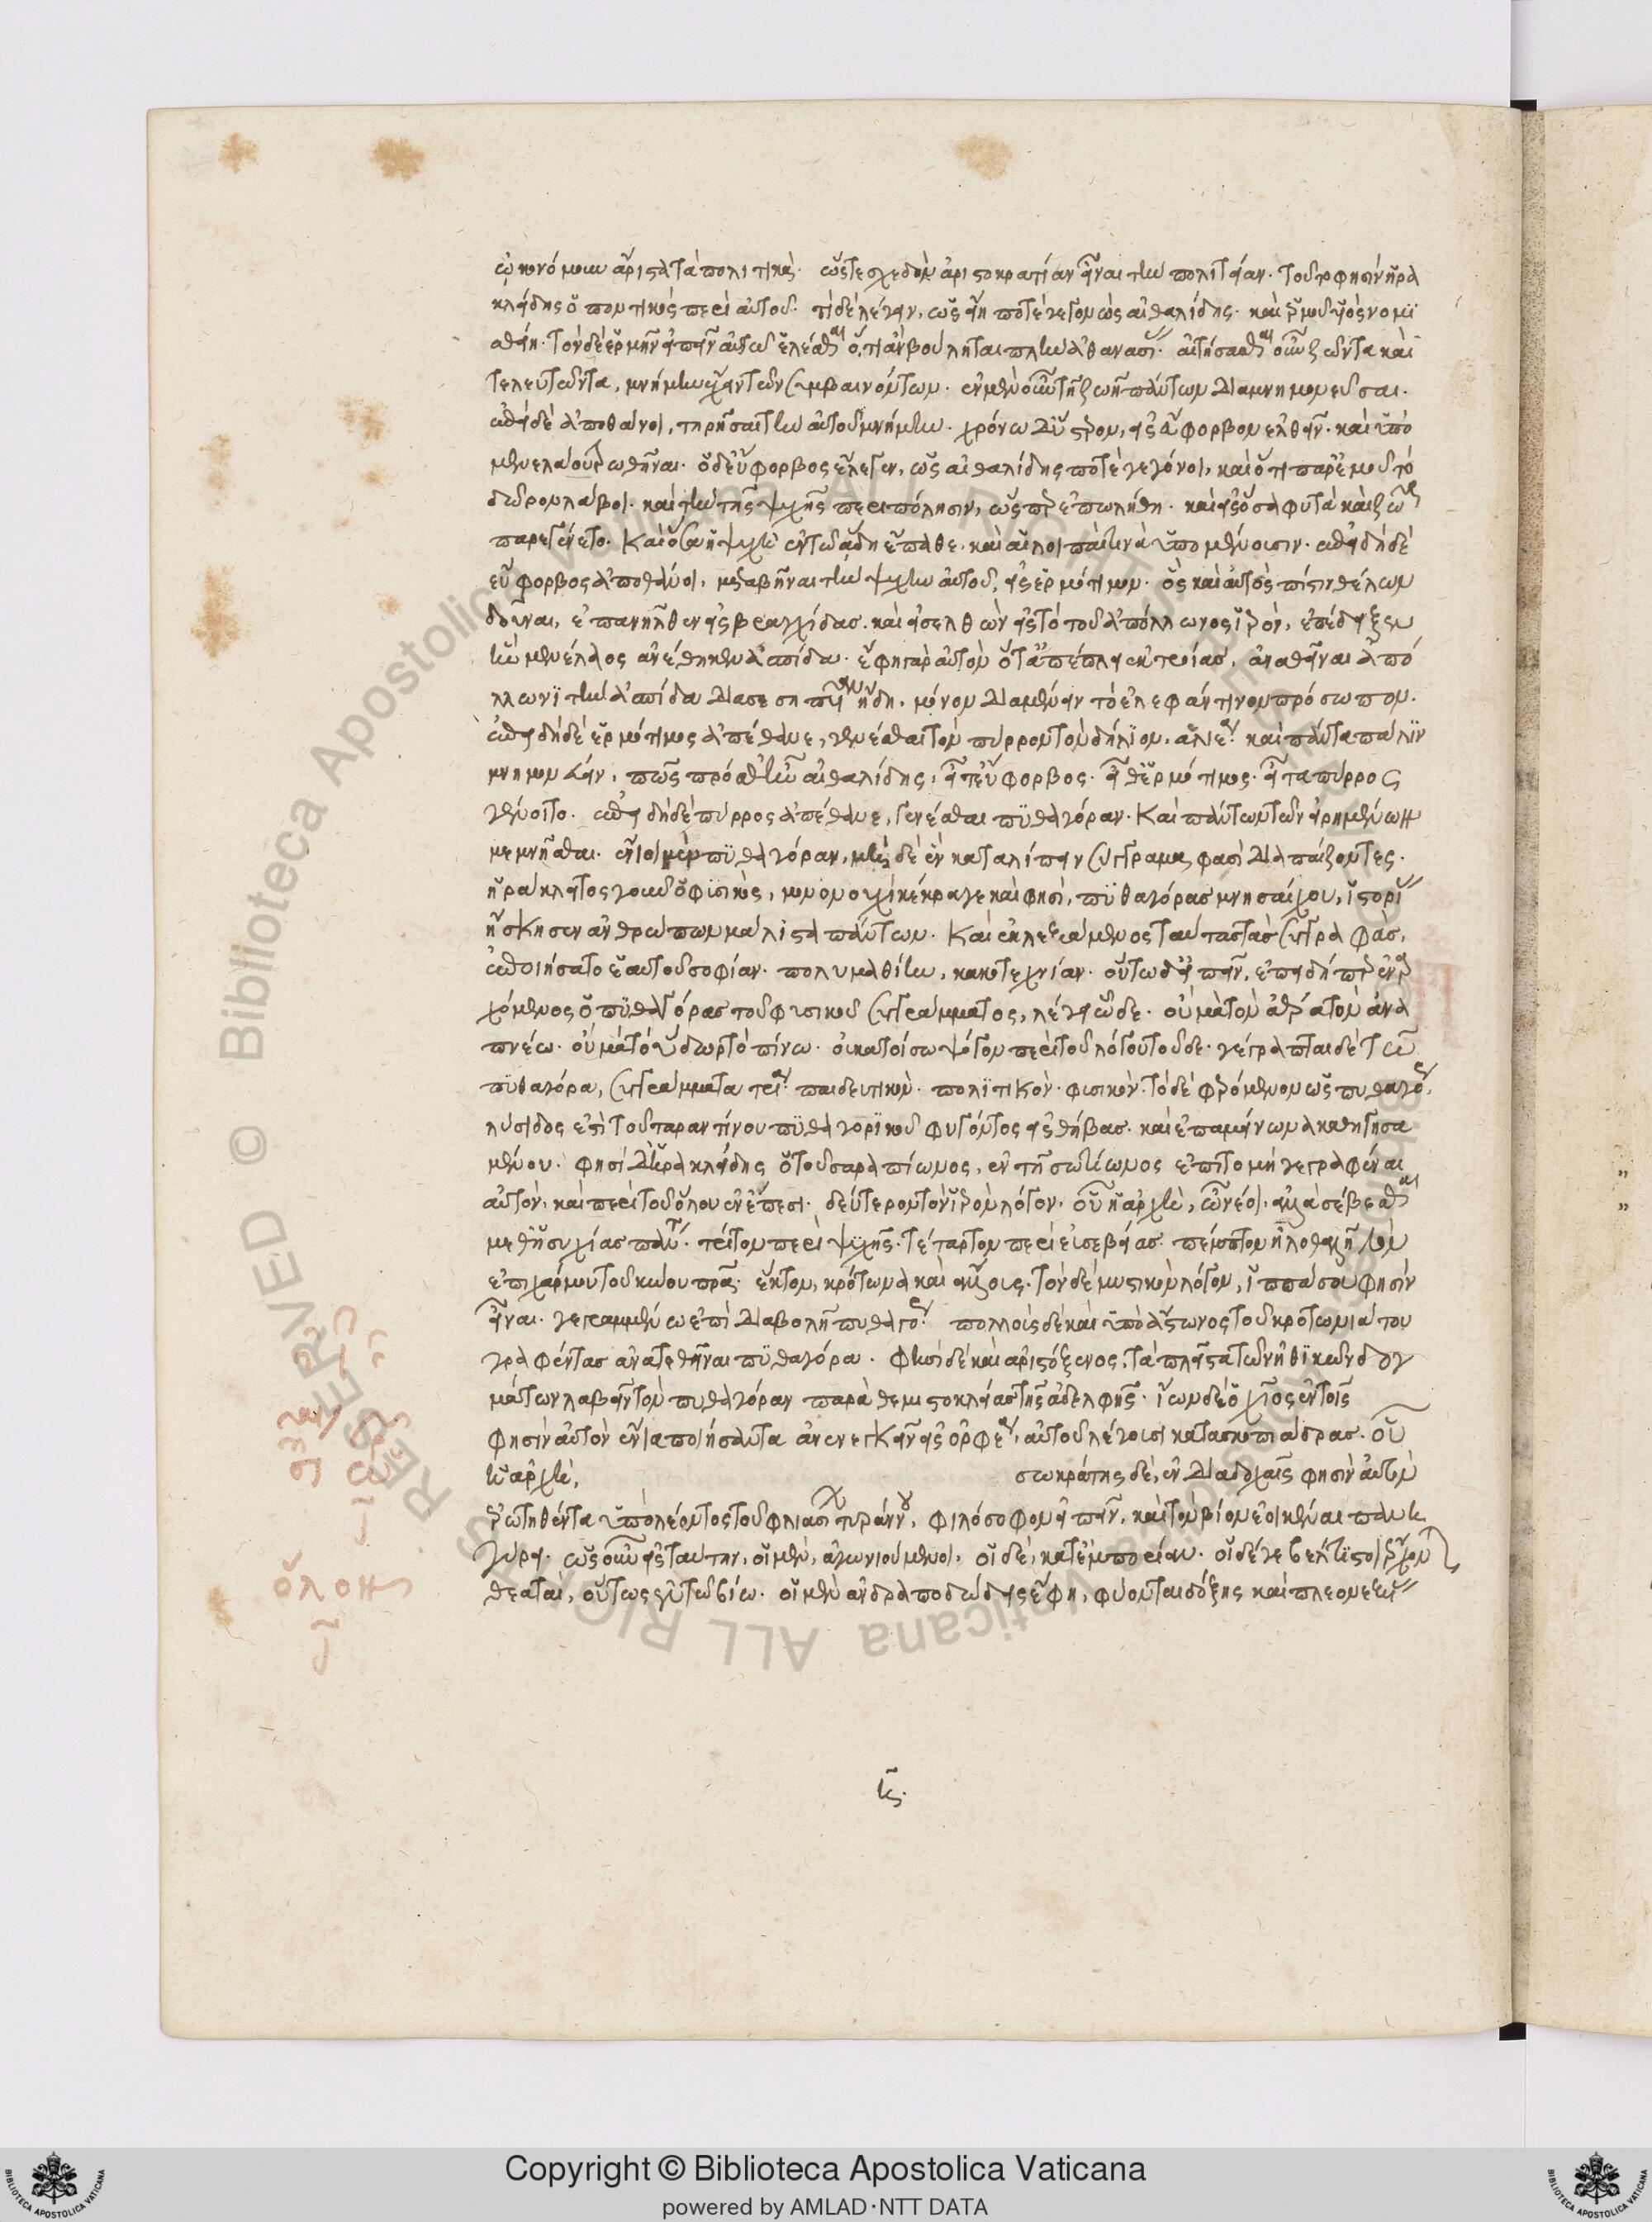 ὠκονόμουν ἄριστα τὰ πολιτικά. ὥστε σχεδὸν ἀριστοκρατίαν εἶναι τὴν πολιτείαν. τοῦτο φησὶν ἡρα
κλείδης ὁ ποντικὸς περὶ αὐτοῦ τάδε λέγειν, ὡς εἴη ποτὲ γεγονὼς αἰθαλίδης. καὶ ἑρμοῦ υἱὸς νομι
σθείη. τὸν δὲ ἑρμῆν εἰπεῖν αὐτῶ ἑλέσθαι ὅ,τι ἂν βούληται πλὴν ἀθανασί. αἰτήσασθαι οὖν ζῶντα καὶ
τελευτῶντα, μνήμην ἔχειν τῶν συμβαινόντων. ἐν μὲν οὖν τῆ ζωῆ πάντων διαμνημονεῦσαι.
ἐπεὶ δὲ ἀποθάνοι, τηρῆσαι τὴν αὐτοῦ μνήμην. χρόνω δ' ὕστερον, εἰς εὔφορβον ἐλθεῖν. καὶ ὑπὸ
μενελάου τρωθῆναι. ὁ δ' εὔφορβος ἔλεγεν, ὡς αἰθαλίδης ποτὲ γεγόνοι, καὶ ὅτι παρ' ἑρμοῦ τὸ
δῶρον λάβοι. καὶ τὴν τῆς ψυχῆς περιπόλησιν, ὡς περιεπολήθη. καὶ εἰς ὅσα φυτὰ καὶ ζῶα
παρεγένετο. καὶ ὅσα ἡ ψυχὴ ἐν τῶ ἅδη ἔπαθε. καὶ αἱ λοιπαὶ τίνα ὑπομένουσιν. ἐπειδὴ δὲ
εὔφορβος ἀποθάνοι, μεταβῆναι τὴν ψυχὴν αὐτοῦ, εἰς ἑρμότιμον. ὃς καὶ αὐτὸς πίστιν θέλων
δοῦναι, ἐπανῆλθεν εἰς βραγχίδας. καὶ εἰσελθὼν εἰς τὸ τοῦ ἀπόλλωνος ἱερὸν, ἐπέδειξεν
ἣν μενέλαος ἀνέθηκεν ἀσπίδα. ἔφη γὰρ αὐτὸν ὅτ' ἀπέπλει ἐκ τροίας, ἀναθεῖναι ἀπό
λλωνι τὴν ἀσπίδα διασεσηπυῖαν ἤδη. μόνον διαμένειν τὸ ἐλεφάντινον πρόσωπον.
ἐπειδὴ δὲ ἑρμότιμος ἀπέθανε, γενέσθαι τὸν πύρρον τὸν δήλιον, ἁλιέα καὶ πάντα πάλιν
μνημονεύειν, πῶς πρόσθεν αἰθαλίδης, εἶτ' εὔφορβος. εἶθ' ἑρμότιμος. εἶτα πύρρος
γένοιτο. ἐπειδὴ δὲ πύρρος ἀπέθανε, γενέσθαι πυθαγόραν. καὶ πάντων τῶν εἰρημένων
μεμνῆσθαι. ἔνιοι μὲν πυθαγόραν, μὴ δὲ ἓν καταλιπεῖν σύγγραμμα φασὶ διαπαίζοντες.
ἡράκλειτος γοῦν ὁ φυσικὸς, μονονουχὶ κέκραγε καὶ φησὶ, πυθαγόρας μνησάρχου, ἱστορί
ἤσκησεν ἀνθρώπων μάλιστα πάντων. καὶ ἐκλεξάμενος ταύτας τὰς συγγραφὰς,
ἐποιήσατο ἑαυτοῦ σοφίαν. πολυμαθίην, κακοτεχνίαν. οὕτω δ' εἰπεῖν, ἐπειδήπερ ἐναρ
χόμενος ὁ πυθαγόρας τοῦ φυσικοῦ συγγράμματος, λέγει ὧδε. οὐ μὰ τὸν ἀέρα τὸν ἀνα
πνέω. οὐ μὰ τὸ ὕδωρ τὸ πίνω. οὐκατοίσω ψόγον περὶ τοῦ λόγου τοῦδε. γέγραπται δὲ τῶ
πυθαγόρα, συγγράμματα τρία. παιδευτικὸν. πολιτικὸν. φυσικὸν. τὸ δὲ φερόμενον ὡς πυθαγό
λύσιδος ἐστὶ τοῦ ταραντίνου πυθαγορικοῦ φυγόντος εἰς θήβας. καὶ ἐπαμεινώνδα καθηγησα
μένου. φησὶ δ' ἡρακλείδης ὁ τοῦ σαραπίωνος, ἐν τῆ σωτίωνος ἐπιτομῆ γεγραφέναι
αὐτὸν. καὶ περὶ τοῦ ὅλου ἐν ἔπεσι. δεύτερον τὸν ἱερὸν λόγον. οὗ ἡ ἀρχὴ, ὦ νέοι. ἀλλὰ σέβεσθαι
μεθ' ἡσυχίας πάντ. τρίτον περὶ ψυχῆς. τέταρτον περὶ εὐσεβείας. πέμπτον ἡλοθαλῆ τὸν
ἐπιχάρμου τοῦ κώου πρα. ἕκτον, κρότωνα καὶ ἄλλους. τὸν δὲ μυστικὸν λόγον, ἱππάσου φησὶν
εἶναι. γεγραμμένον ἐπὶ διαβολῆ πυθαγό. πολλοὺς δὲ καὶ ὑπὸ ἄστωνος τοῦ κροτωνιάτου
γραφέντας ἀνατεθῆναι πυθαγόρα. φησὶ δὲ καὶ ἀριστόξενος, τὰ πλεῖστα τῶν ἠθικῶν δογ
μάτων λαβεῖν τὸν πυθαγόραν παρὰ θεμιστοκλείας τῆς ἀδελφῆς. ἴων δὲ ὁ χῖος ἐν τοῖς
φησὶν αὐτὸν ἔνια ποιήσαντα ἀνενεγκεῖν εἰς ὀρφέα. αὐτοῦ λέγουσι κατασκοπιάδρας. οὗ
ἡ ἀρχὴ, σωκράτης δὲ, ἐν διαδοχαῖς φησὶν αὐτὸν
ἐρωτηθέντα ὑπὸ λέοντος τοῦ φλιασί τυράννου, φιλόσοφον εἰπεῖν. καὶ τὸν βίον ἐοικέναι πανη
γύρει. ὡς οὖν εἰς ταύτην, οἱ μὲν, ἀγωνιούμενοι. οἱ δὲ, κατ' ἐμπορίαν. οἱ δέ γε βέλτιστοι ἔρχονται
θεαταὶ, οὕτως ἐν τῶ βίω. οἱ μὲν ἀνδραποδώδεις ἔφη, φύονται δόξης καὶ πλεονεξί
Copyright © Biblioteca Apostolica Vaticana
powered by AMLAD·NTT DATA